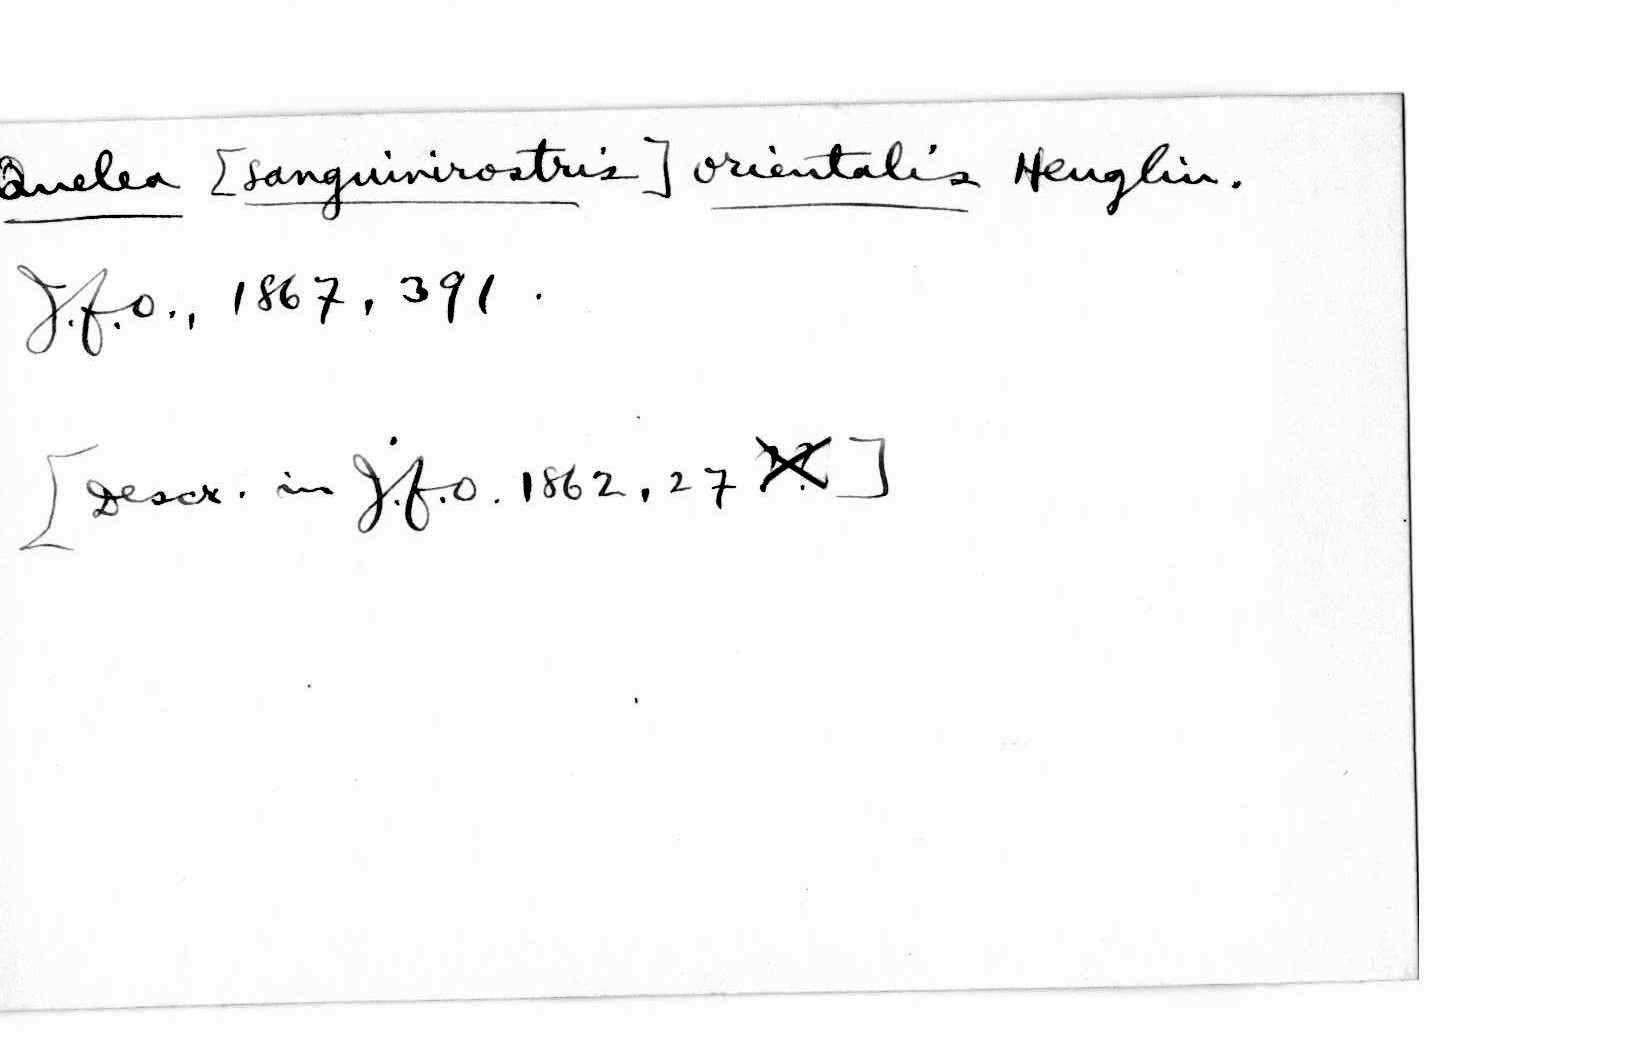 Quelea [sanguinirostris] orientalis Heuglin.
J.f.O., 1867, 391.
[Descr. in J.f.O. 1862, 27 ]